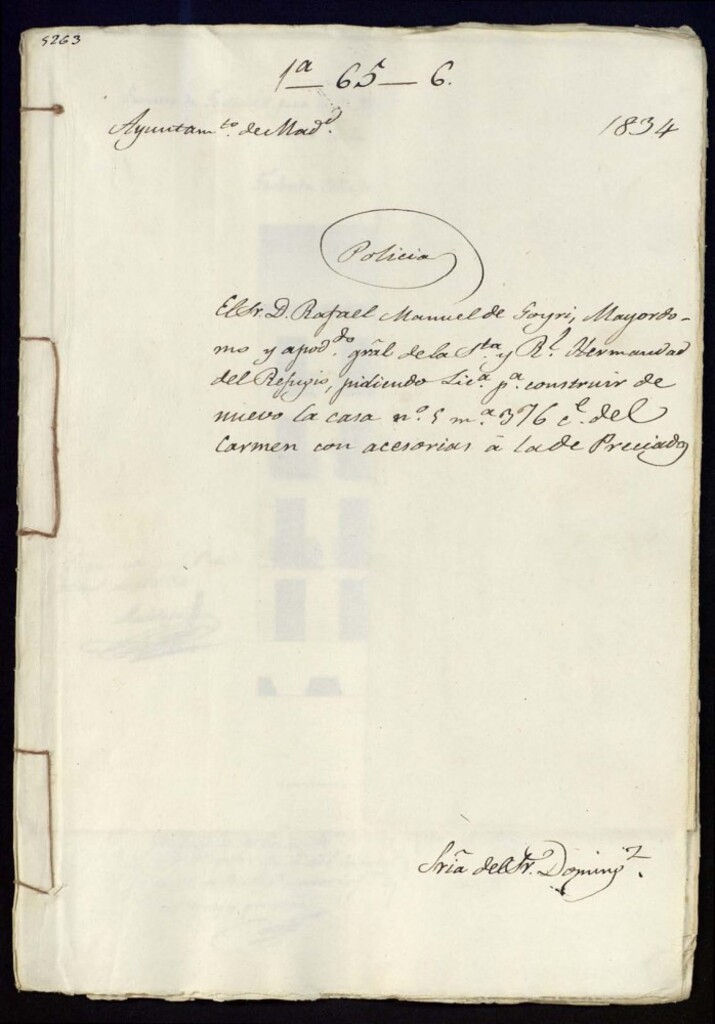 5263
1ª — 65 — 6.
Ayuntam.to de Mad.d
1834
Policia
El Sr. D. Rafael Manuel de Goyri, Mayordo-
mo y apod.do gral de la S.ta y R.l Hermandad
del Refugio, pidiendo Lic.a p.a construir de
nuevo la casa n.o 5 m.a 376 c.e del
Carmen con acesorias á la de Preciados
Sria del Sr. Doming.z